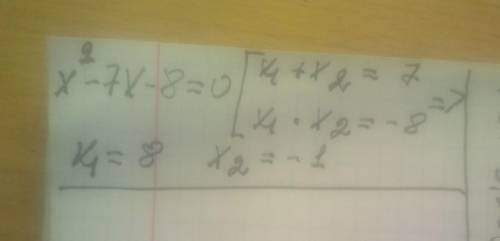 x²-7x-8=0 [ x₁+x₂ = 7
x₁·x₂ = -8 =>
x₁ = 8 x₂ = -1